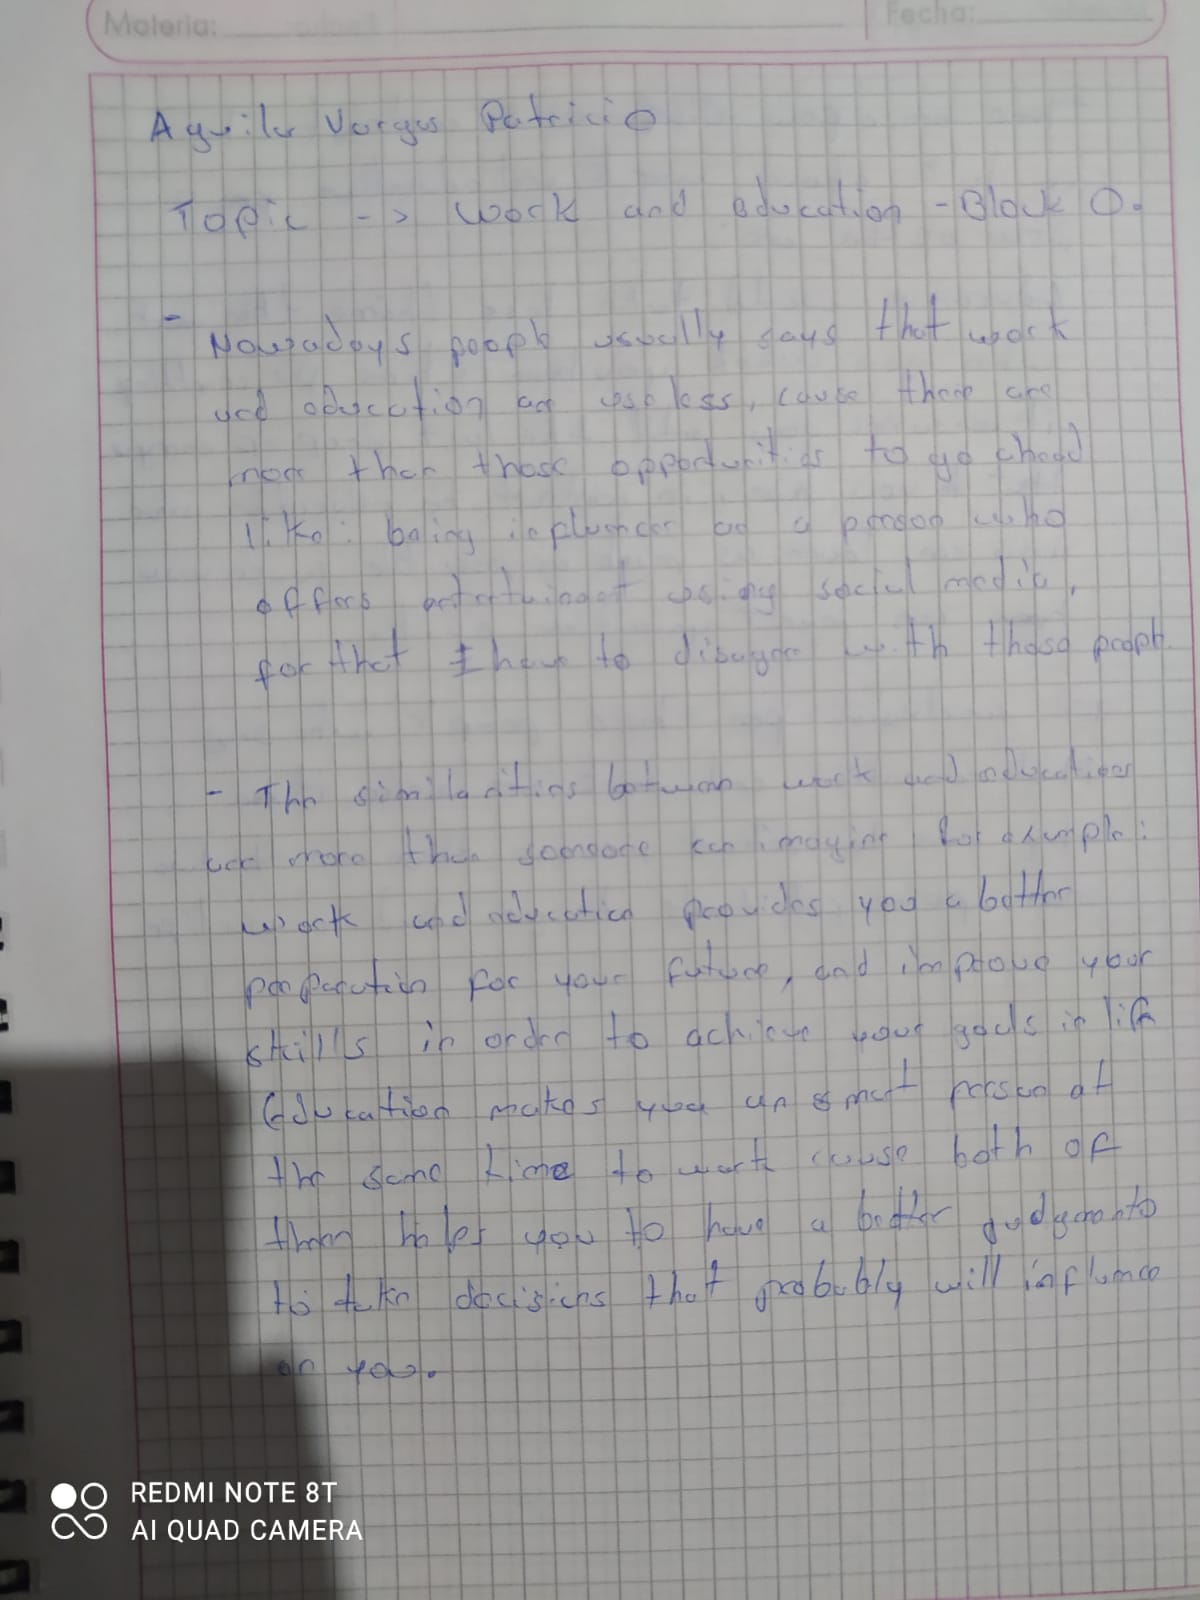 Materia: Fecha:
Aguilar Vargas Patricio
Topic -> Work and education - Block 0.
- Nowadays people usually says that work
and education are useless, cause there are
more than those opportunities to go ahead
like: being influencer as a person who
offers using social media,
for that I have to disagree with those people
- The similarities between work and education
are more than someone can imagine for example:
work and education provides you a better
preparation for your future, and improve your
skills in order to achieve your goals in life
Education makes you an smart person at
the same time to work cause both of
them helps you to have a better judgments
to take decisions that probably will influence
on you.
REDMI NOTE 8T
AI QUAD CAMERA